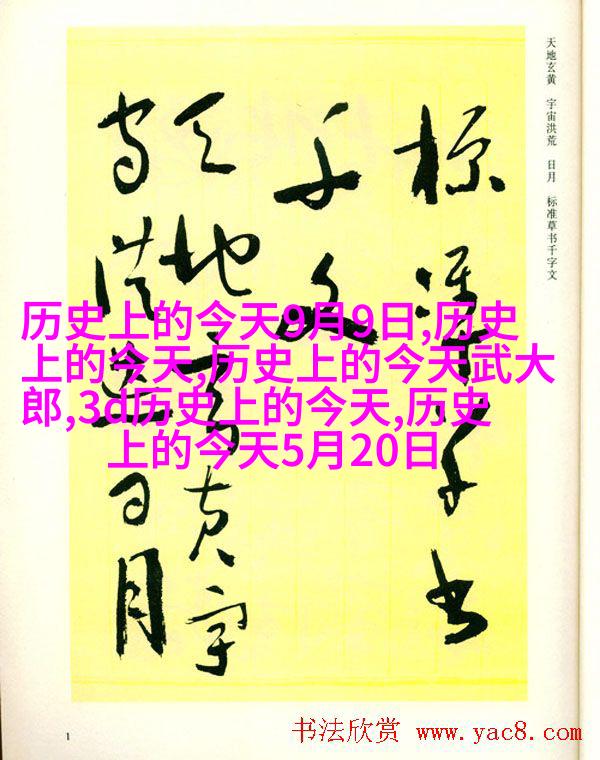 天地玄黄 宇宙洪荒 日月 标准草书千字文
標準草書
千文
天地玄黄宇
宙洪荒日月
历史上的今天9月9日,历史
上的今天,历史上的今天武大
郎,3d历史上的今天,历史
上的今天5月20日
1
书法欣赏 www.yac8.com